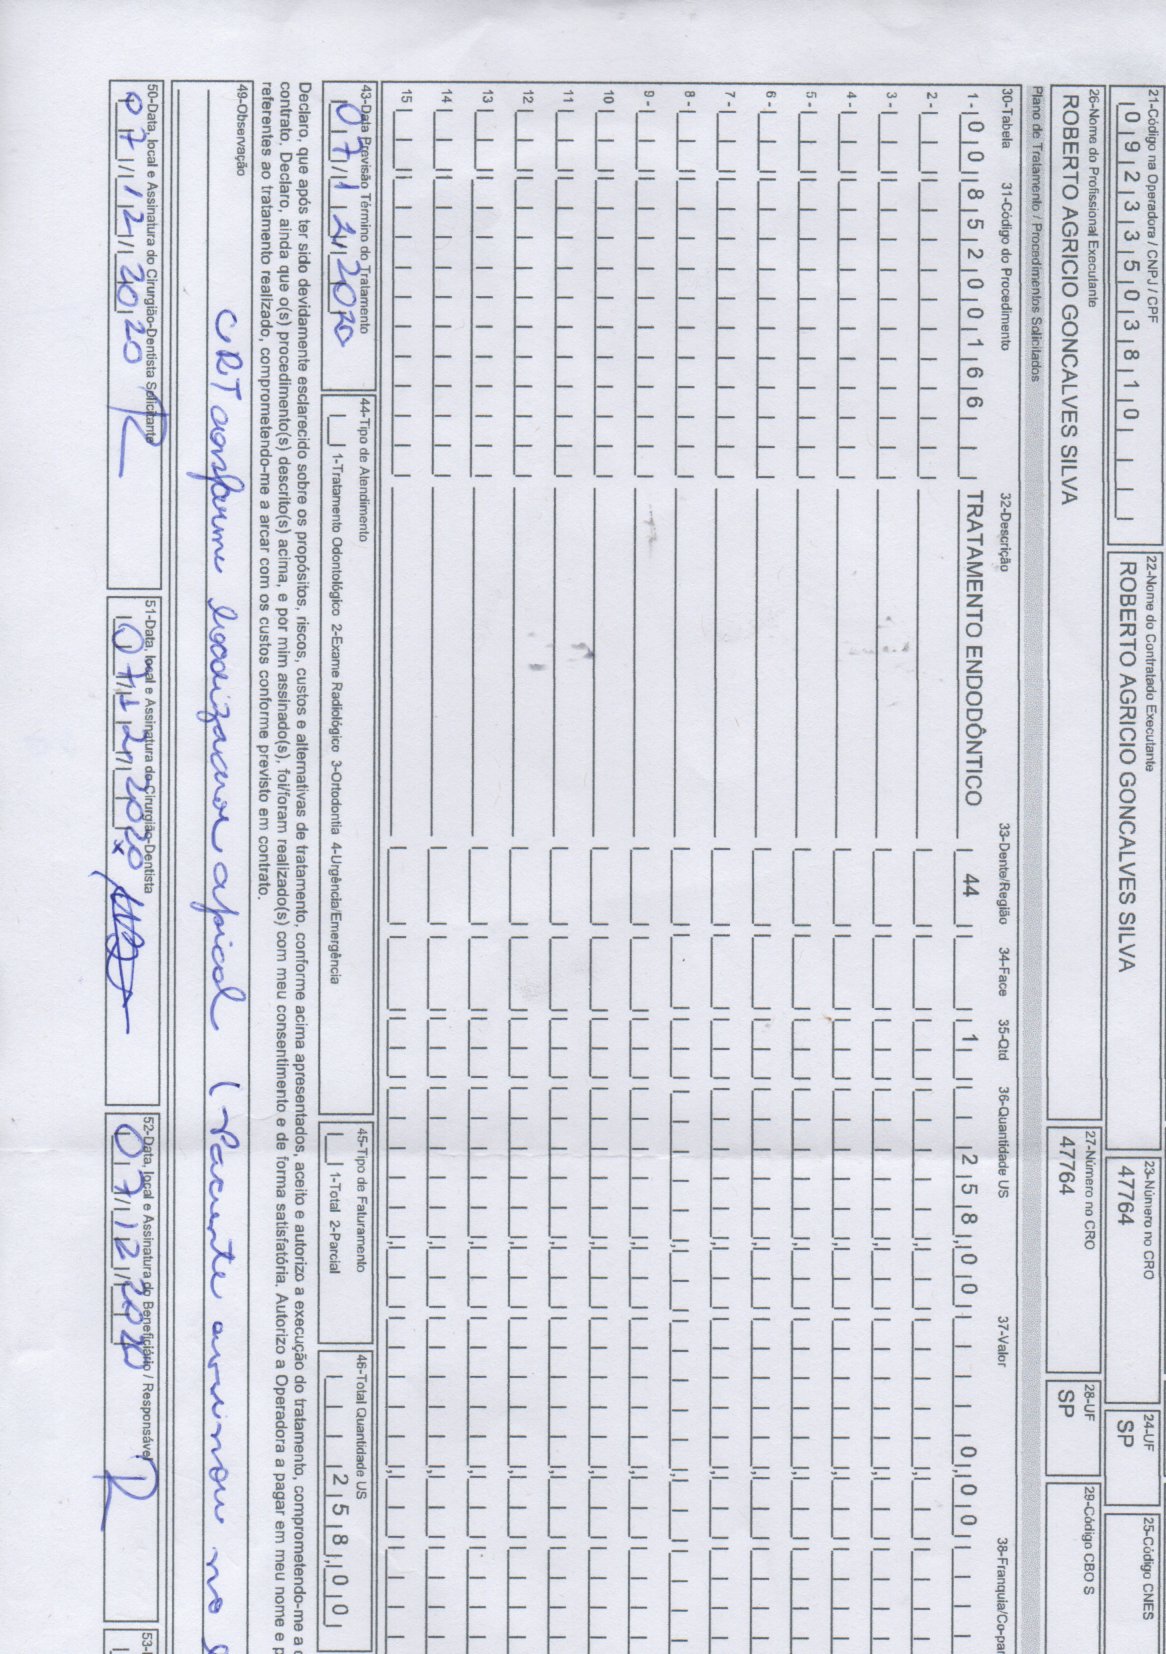 21-Código na Operadora / CNPJ / CPF
0 9 2 3 3 5 0 3 8 1 0
22-Nome do Contratado Executante
ROBERTO AGRICIO GONCALVES SILVA
23-Número no CRO
47764
24-UF
SP
25-Código CNES
26-Nome do Profissional Executante
ROBERTO AGRICIO GONCALVES SILVA
27-Número no CRO
47764
28-UF
SP
29-Código CBO S
Plano de Tratamento / Procedimentos Solicitados
30-Tabela 31-Código do Procedimento 32-Descrição 33-Dente/Região 34-Face 35-Qtd 36-Quantidade US 37-Valor 38-Franquia/Co-par
1 - 0 0 8 5 2 0 0 1 6 6 TRATAMENTO ENDODÔNTICO 44 1 2 5 8 , 0 0 0 , 0 0
2 -
3 -
4 -
5 -
6 -
7 -
8 -
9 -
10
11
12
13
14
15
43-Data Previsão Término do Tratamento
07/12/2020
44-Tipo de Atendimento
1-Tratamento Odontológico 2-Exame Radiológico 3-Ortodontia 4-Urgência/Emergência
45-Tipo de Faturamento
1-Total 2-Parcial
46-Total Quantidade US
2 5 8 , 0 0
Declaro, que após ter sido devidamente esclarecido sobre os propósitos, riscos, custos e alternativas de tratamento, conforme acima apresentados, aceito e autorizo a execução do tratamento, comprometendo-me a
contrato. Declaro, ainda que o(s) procedimento(s) descrito(s) acima, e por mim assinado(s), foi/foram realizado(s) com meu consentimento e de forma satisfatória. Autorizo a Operadora a pagar em meu nome e
referentes ao tratamento realizado, comprometendo-me a arcar com os custos conforme previsto em contrato.
49-Observação
CRT conforme localizador apical (Paciente assinou no
50-Data, local e Assinatura do Cirurgião-Dentista Solicitante
07/12/2020
51-Data, local e Assinatura do Cirurgião-Dentista
07/12/2020
52-Data, local e Assinatura do Beneficiário / Responsável
07/12/2020
53-